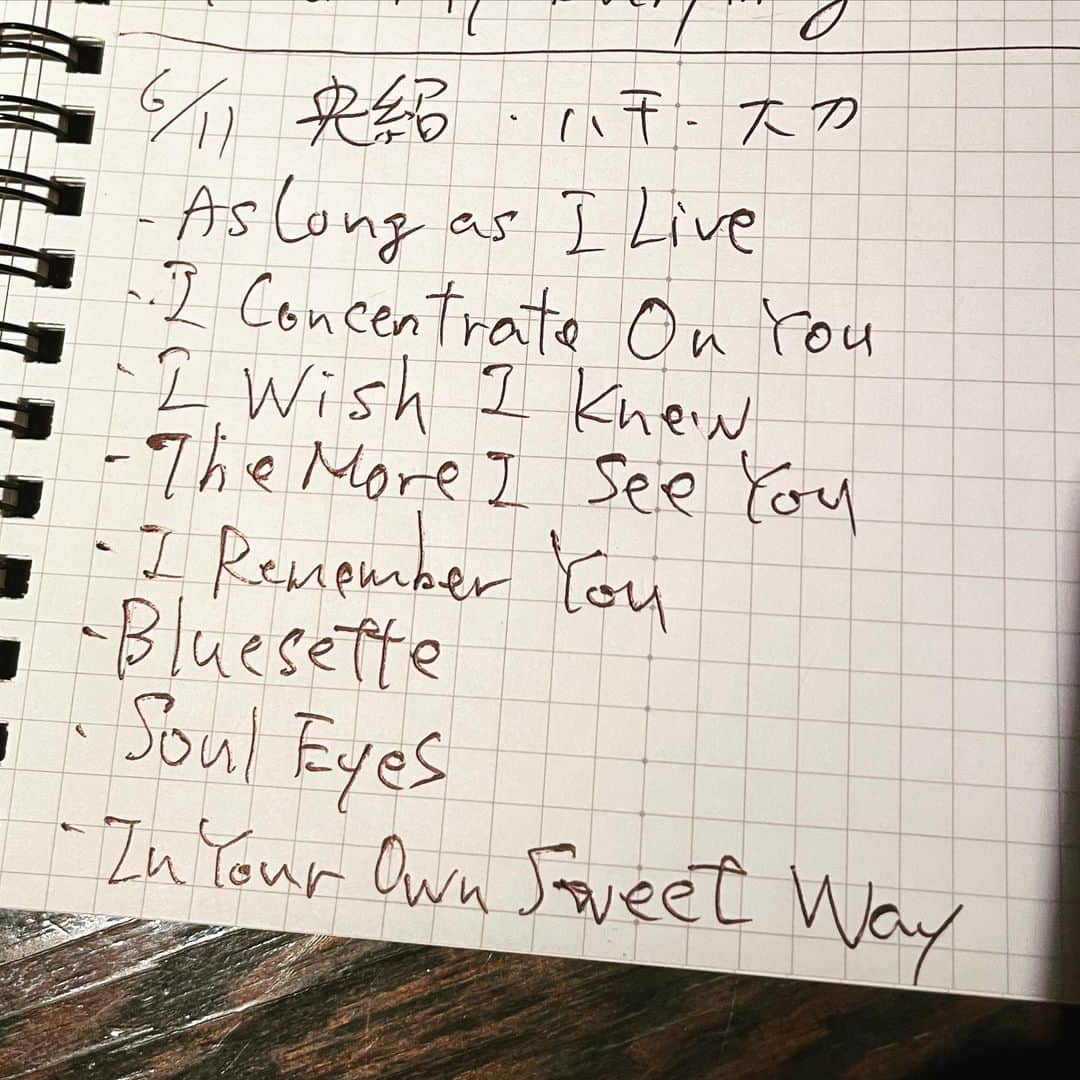 6/11 央紹・八千・大力
- As Long as I Live
- I Concentrate On You
- I Wish I Knew
- The More I See You
- I Remember You
- Bluesette
- Soul Eyes
- In Your Own Sweet Way